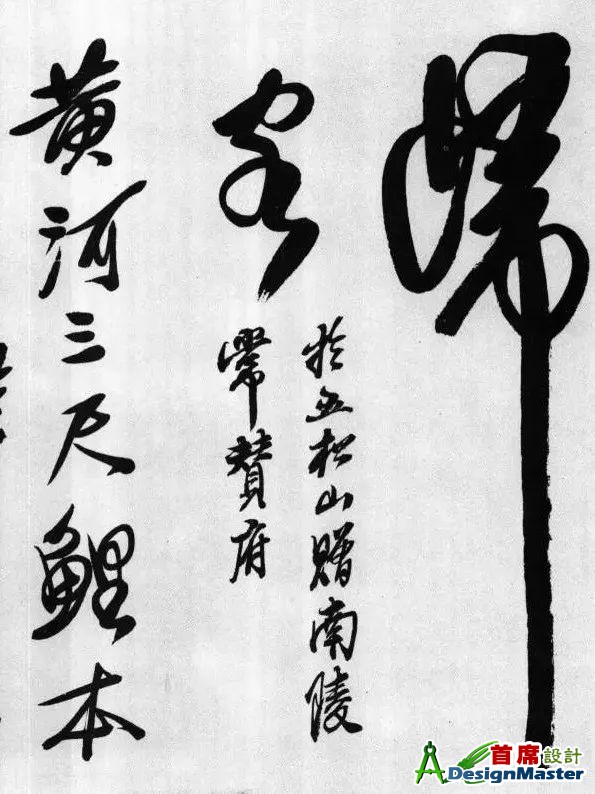 歸
客
於五松山贈南陵
常贊府
黄河三尺鯉本
首席設計
ADesignMaster